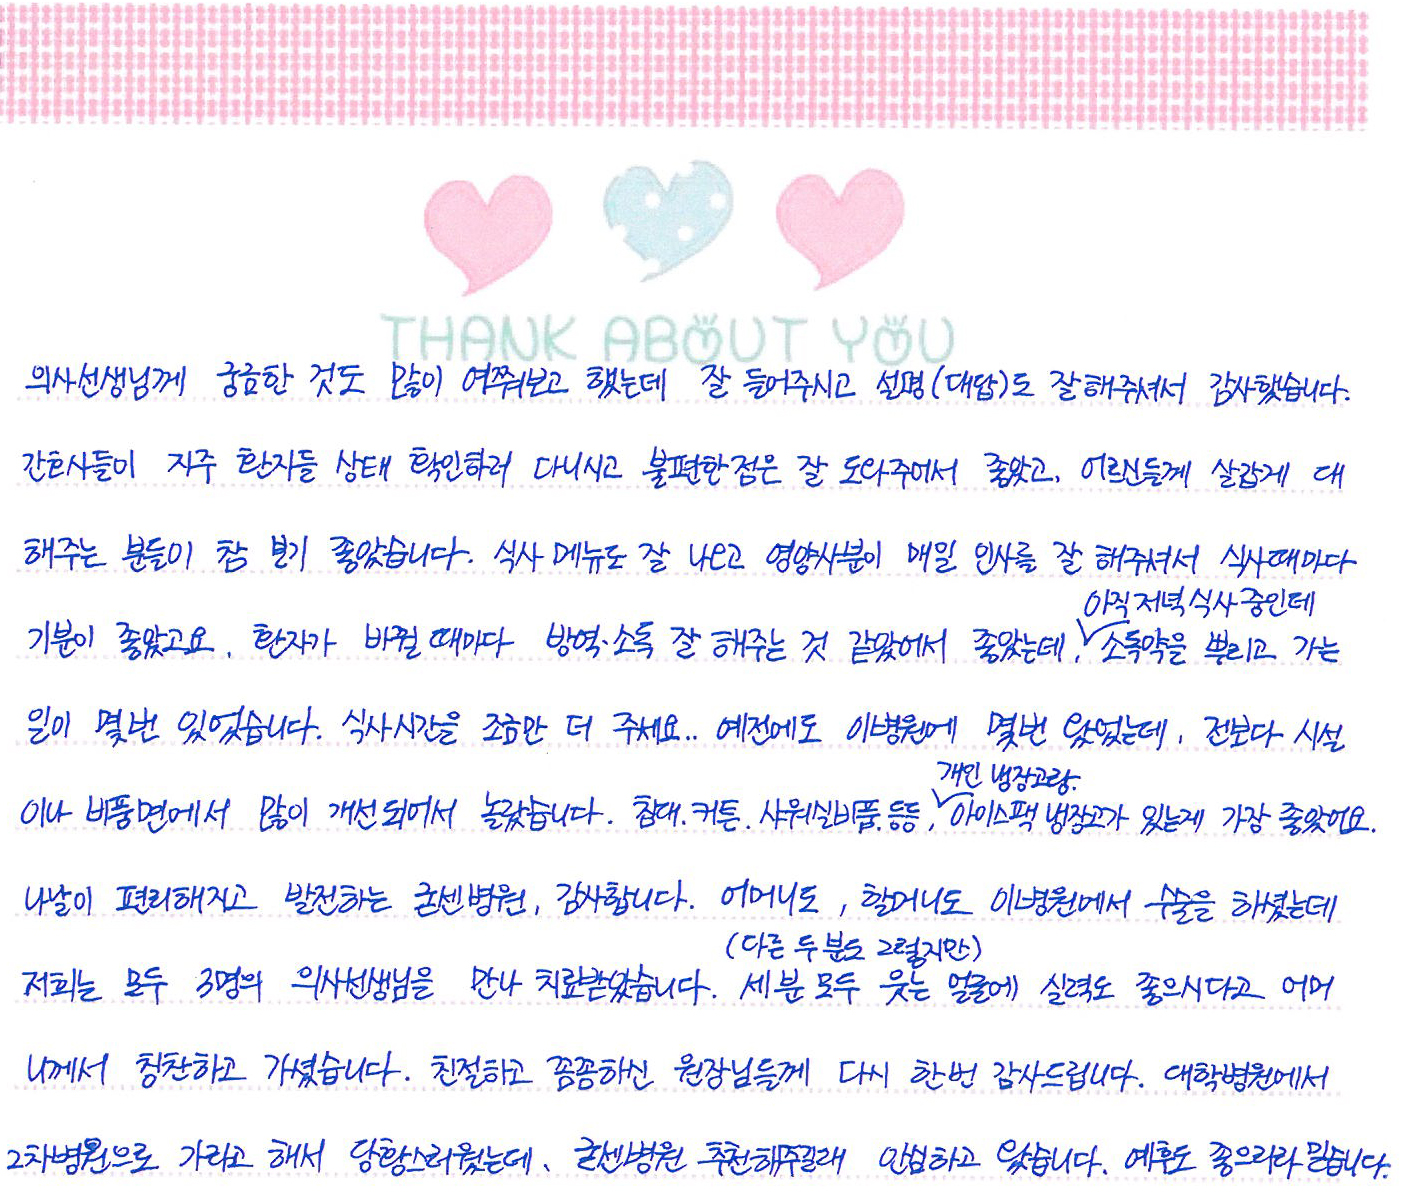 THANK ABOUT YOU
의사선생님께 궁금한 것도 많이 여쭤보고 했는데 잘 들어주시고 설명(대답)도 잘해주셔서 감사했습니다.
간호사들이 자주 환자들 상태 확인하러 다니시고 불편한점은 잘 도와주어서 좋았고, 어르신들께 살갑게 대
해주는 분들이 참 보기 좋았습니다. 식사 메뉴도 잘 나오고 영양사분이 매일 인사를 잘 해주셔서 식사때마다
아직 저녁식사 중인데
기분이 좋았고요, 환자가 바뀔 때마다 방역·소독 잘 해주는 것 같았어서 좋았는데, 소독약을 뿌리고 가는
일이 몇번 있었습니다. 식사시간을 조금만 더 주세요.. 예전에도 이병원에 몇번 왔었는데, 전보다 시설
개인 냉장고랑.
이나 비품면에서 많이 개선되어서 놀랐습니다. 침대.커튼. 샤워실비품.등등, 아이스팩 냉장고가 있는게 가장 좋았어요.
나날이 편리해지고 발전하는 굳센병원, 감사합니다. 어머니도, 할머니도 이병원에서 수술을 하셨는데
(다른 두 분도 그렇지만)
저희는 모두 3명의 의사선생님을 만나 치료받았습니다. 세 분 모두 웃는 얼굴에 실력도 좋으시다고 어머
니께서 칭찬하고 가셨습니다. 친절하고 꼼꼼하신 원장님들께 다시 한번 감사드립니다. 대학병원에서
2차병원으로 가라고 해서 당황스러웠는데, 굳센병원 추천해주길래 안심하고 왔습니다. 예후도 좋으리라 믿습니다.